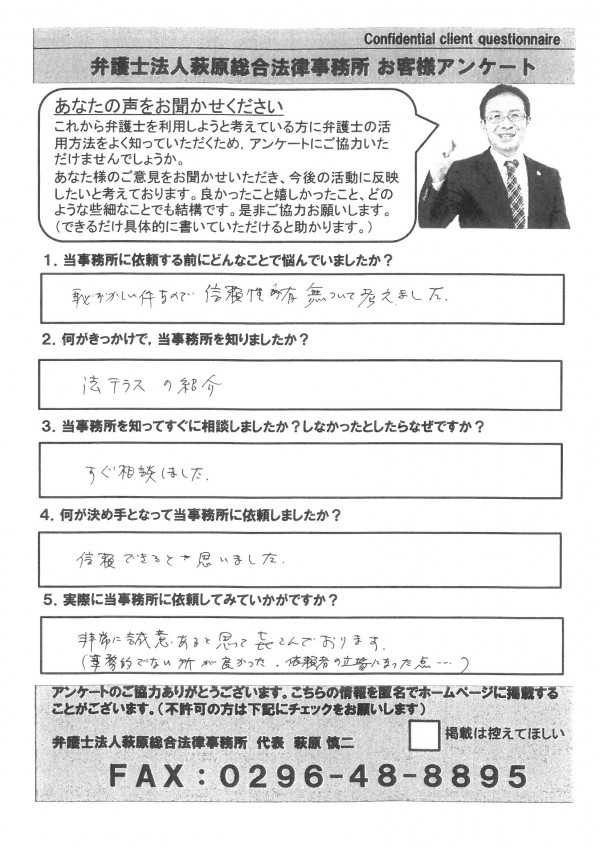 Confidential client questionnaire
弁護士法人萩原総合法律事務所 お客様アンケート
あなたの声をお聞かせください
これから弁護士を利用しようと考えている方に弁護士の活
用方法をよく知っていただくため，アンケートにご協力いた
だけませんでしょうか。
あなた様のご意見をお聞かせいただき、今後の活動に反映
したいと考えております。良かったこと嬉しかったこと、どの
ような些細なことでも結構です。是非ご協力お願いします。
（できるだけ具体的に書いていただけると助かります。）
１．当事務所に依頼する前にどんなことで悩んでいましたか？
恥ずかしい件なので 信頼性の有無ついて考えました.
２．何がきっかけで，当事務所を知りましたか？
法テラス の紹介
３．当事務所を知ってすぐに相談しましたか？しなかったとしたらなぜですか？
すぐ相談しました.
４．何が決め手となって当事務所に依頼しましたか？
信頼できると思いました.
５．実際に当事務所に依頼してみていかがですか？
非常に誠意あると思って喜こんでおります.
（事務的でない所が良かった．依頼者の立場になった点…）
アンケートのご協力ありがとうございます。こちらの情報を匿名でホームページに掲載する
ことがございます。（不許可の方は下記にチェックをお願いします）
弁護士法人萩原総合法律事務所 代表 萩原 慎二
掲載は控えてほしい
ＦＡＸ：０２９６－４８－８８９５